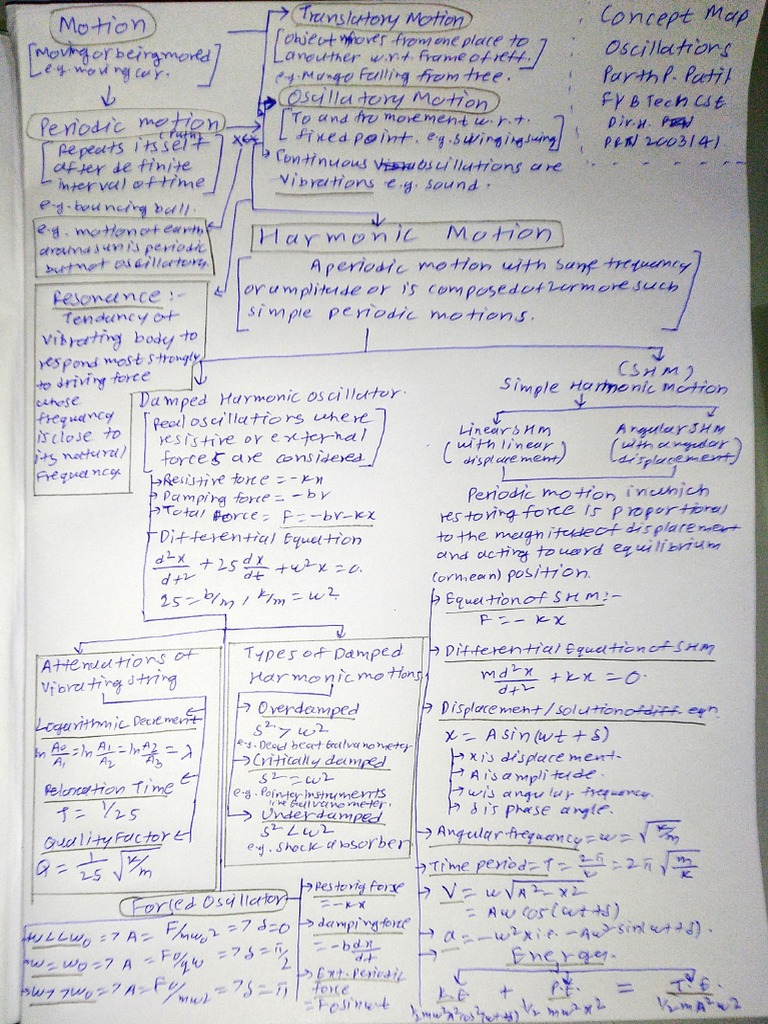 Motion
[Moving or being moved
e.g. moving car.
Translatory Motion
[object moves from one place to
another w.r.t frame of reff.]
e.g. Mango falling from tree.
Concept Map
Oscillations
Parth P. Patil
FYBTech CSE
Div.H.
PRN 2003141
Periodic motion
[Repeats itself (Path)
after definite
interval of time]
e.g. bouncing ball.
e.g. motion of earth
around sun is periodic
but not oscillatory.
Oscillatory Motion
[To and fro movement w.r.t.
fixed point. e.g. swinging swing]
Continuous oscillations are
vibrations e.g. sound.
Harmonic Motion
[A periodic motion with same frequency
or amplitude or is composed of 2 or more such
simple periodic motions.]
Resonance :-
Tendancy of
vibrating body to
respond most strongly
to driving force
whose
frequency
is close to
its natural
frequency.
Damped Harmonic oscillator.
[Real oscillations where
resistive or external
forces are considered]
Resistive force = -kx
Damping force = -bv
Total force = F = -bv-kx
Differential Equation
d²x/dt² + 2s dx/dt + ω²x = 0.
2s = b/m, k/m = ω²
(SHM)
Simple Harmonic motion
Linear SHM
(with linear
displacement)
Angular SHM
(with angular
displacement)
Periodic motion in which
restoring force is proportional
to the magnitude of displacement
and acting toward equilibrium
(or mean) position.
Equation of SHM:-
F = - kx
Differential Equation of SHM
md²x/dt² + kx = 0.
Displacement/solution of diff. eqn.
x = A sin(ωt + δ)
x is displacement.
A is amplitude.
ω is angular frequency.
δ is phase angle.
Angular frequency = ω = √k/m
Time period = T = 2π/ω = 2π √m/k
V = ω√A²-x²
= Aω cos(ωt+δ)
a = -ω²x i.e. -Aω² sin(ωt+δ).
Energy.
K.E. + P.E. = T.E.
1/2 mω²A²cos²(ωt+δ) 1/2 mω²x² 1/2 mA²ω²
Attenuations of
Vibrating string
Logarithmic Decrement
ln A0/A1 = ln A1/A2 = ln A2/A3 = λ
Relaxation Time
T = 1/2s
Quality Factor
Q = 1/2s √k/m
Types of Damped
Harmonic motions
Overdamped
s² > ω²
e.g. Dead beat Galvanometer
Critically damped
s² = ω²
e.g. Pointer Instruments
like Galvanometer.
Underdamped
s² < ω²
e.g. shock absorber
Forced Oscillator
ω<<ω0 => A = F/mω0² => δ=0
ω = ω0 => A = F0/qω => δ = π/2
ω>>ω0 => A = F0/mω² => δ = π
Restoring force
= -kx
damping force
= -b dx/dt
Ext. Periodic
force
= F0 sin ωt